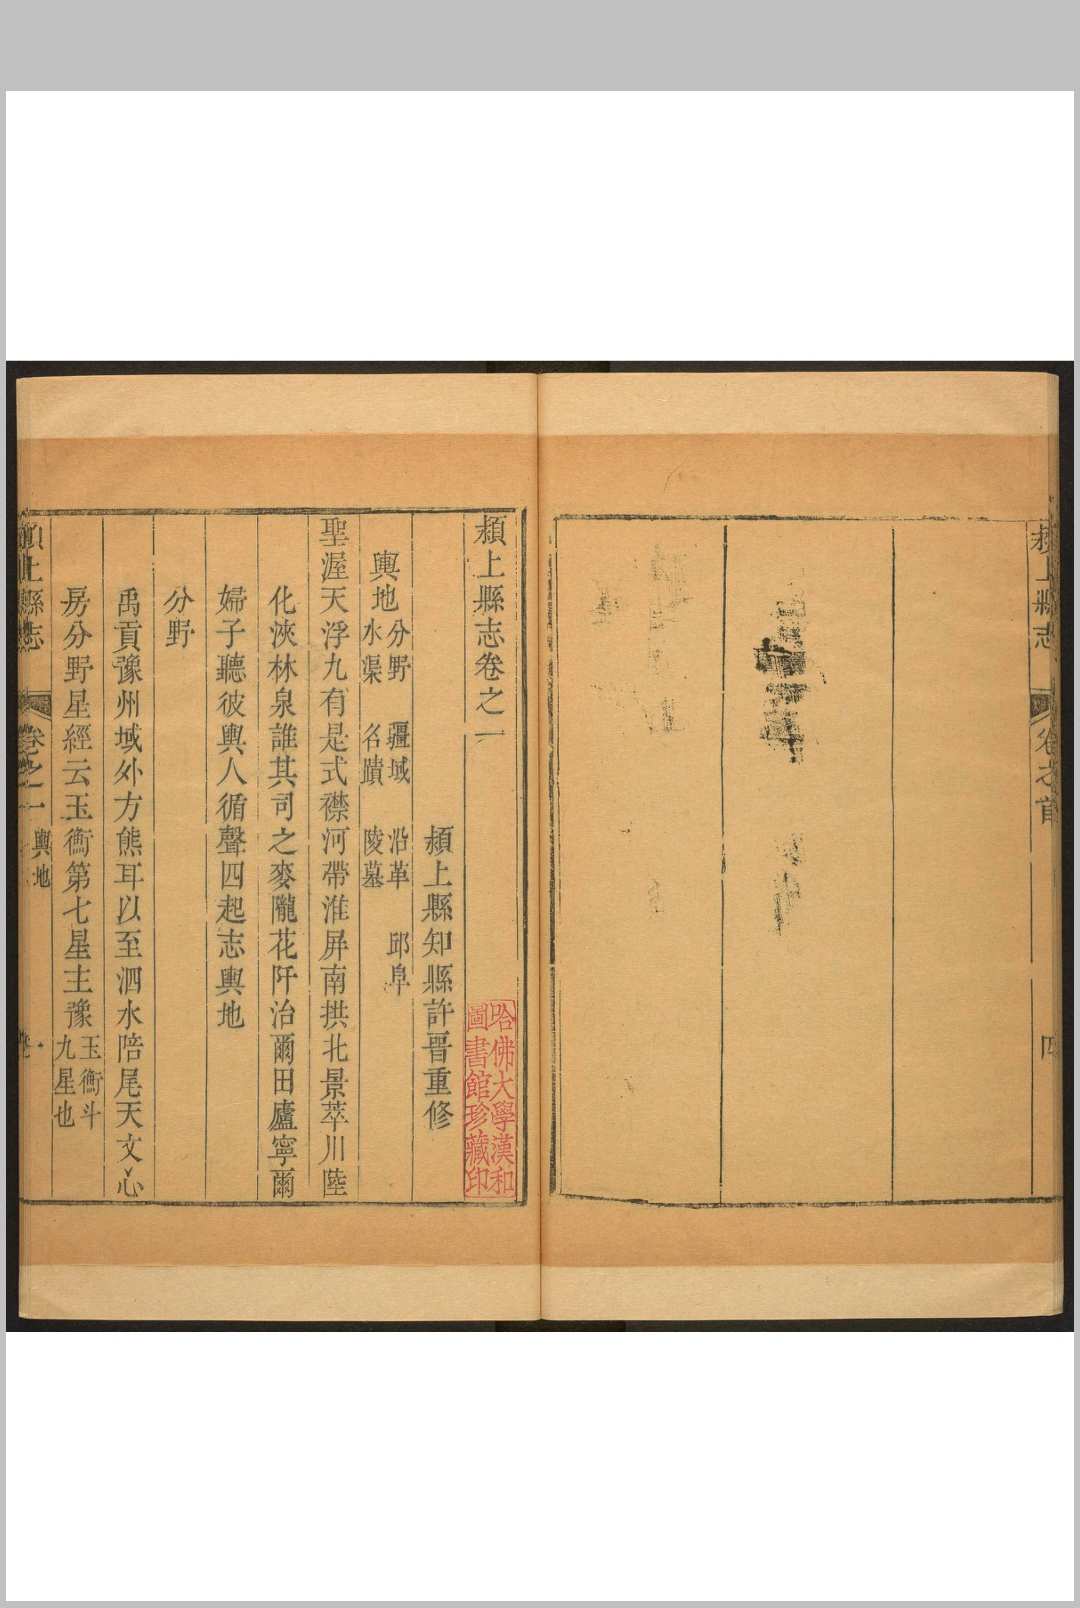 潁上縣志
卷之首
四
潁上縣志卷之一
潁上縣知縣許晉重修
輿地
分野 疆域 沿革 邱阜
水渠 名蹟 陵墓
聖渥天浮九有是式襟河帶淮屏南拱北景萃川陸
化浹林泉誰其司之麥隴花阡治爾田廬寧爾
婦子聽彼輿人循聲四起志輿地
分野
禹貢豫州域外方熊耳以至泗水陪尾天文心
房分野星經云玉衡第七星主豫
玉衡斗
九星也
潁上縣志
卷之一
輿地
一
哈佛大學漢和
圖書館珍藏印